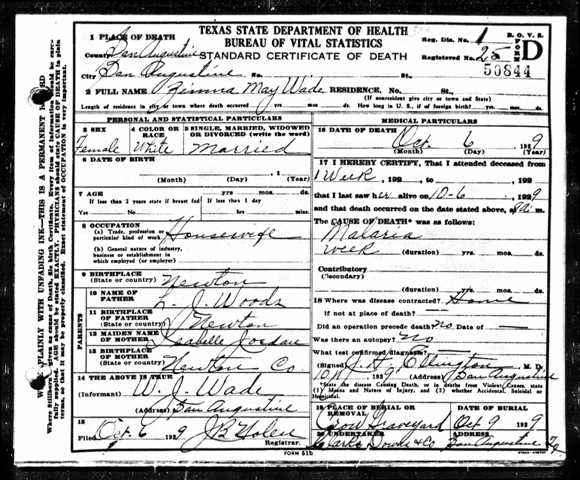 TEXAS STATE DEPARTMENT OF HEALTH
BUREAU OF VITAL STATISTICS
STANDARD CERTIFICATE OF DEATH
Reg. Dis. 1
Registered No. 25
B. O. V. S.
FORM D
50844
1 PLACE OF DEATH
County San Augustine
City San Augustine No. St.
2 FULL NAME May Wade RESIDENCE. No. St.
(If nonresident give city or town and State)
Length of residence in city or town where death occurred yrs. mos. ds. How long in U. S., if of foreign birth? yrs. mos. ds.
PERSONAL AND STATISTICAL PARTICULARS
3 SEX
Female
4 COLOR OR RACE
White
5 SINGLE, MARRIED, WIDOWED OR DIVORCED (write the word)
Married
6 DATE OF BIRTH
(Month) (Day) (Year)
7 AGE yrs. mos. ds.
If less than 2 years state if breast fed If less than 1 day
Yes No hrs. min.
8 OCCUPATION
(a) Trade, profession or particular kind of work Housewife
(b) General nature of industry, business or establishment in which employed (or employer)
9 BIRTHPLACE
(State or country) Newton
PARENTS
10 NAME OF FATHER L. J. Woods
11 BIRTHPLACE OF FATHER
(State or country) Newton
12 MAIDEN NAME OF MOTHER Isabelle Jordan
13 BIRTHPLACE OF MOTHER
(State or country) Newton Co
14 THE ABOVE IS TRUE
Informant W. J. Wade
(Address) San Augustine
15
Filed Oct. 6 1929 J B
Registrar.
MEDICAL PARTICULARS
16 DATE OF DEATH
Oct. 6 1929
(Month) (Day) (Year)
17 I HEREBY CERTIFY, That I attended deceased from
1 Week, 192 to 192
that I last saw her alive on 10-6 1929
and that death occurred on the date stated above, at m.
The CAUSE OF DEATH* was as follows:
Malaria
week (duration) yrs. mos. ds.
Contributory
(Secondary)
(duration) yrs. mos. ds.
18 Where was disease contracted? Home
if not at place of death?
Did an operation precede death? no Date of
Was there an autopsy? No
What test confirmed diagnosis?
(Signed) J. H. Ellington, M. D.
10/6 1929 (Address) San Augustine
*State the Disease Causing Death, or in deaths from Violent Causes, state (1) Means and Nature of Injury, and (2) whether Accidental, Suicidal or Homicidal.
19 PLACE OF BURIAL OR REMOVAL
Graveyard
DATE OF BURIAL
Oct 9 1929
20 UNDERTAKER
Downs & Co
ADDRESS
San Augustine Tx
FORM 51b
WRITE PLAINLY WITH UNFADING INK—THIS IS A PERMANENT RECORD